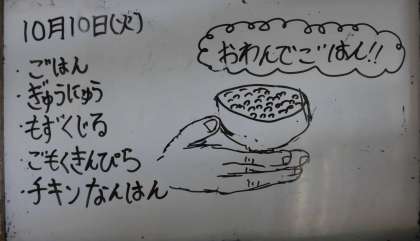 10月10日(火)
おわんでごはん!!
・ごはん
・ぎゅうにゅう
・もずくじる
・ごもくきんぴら
・チキンなんばん